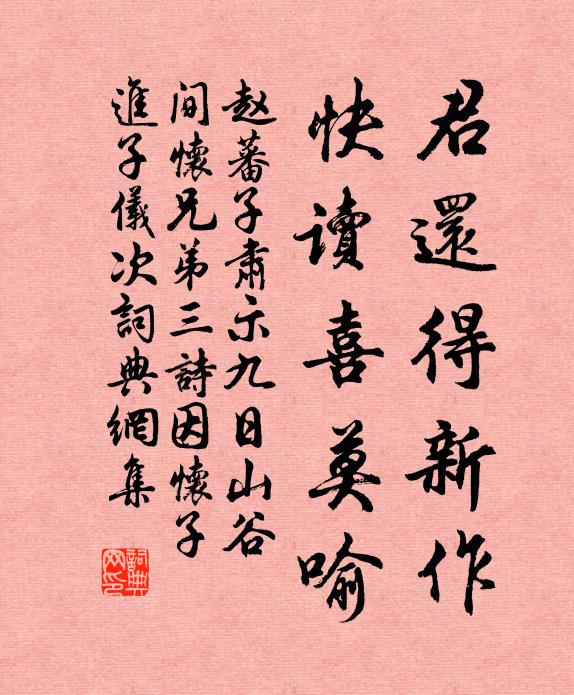 君還得新作
快讀喜莫喻
赵蕃子肅示九日山谷
間懷兄弟三詩因懷子
進子儀次詞典網集
詞典
网印